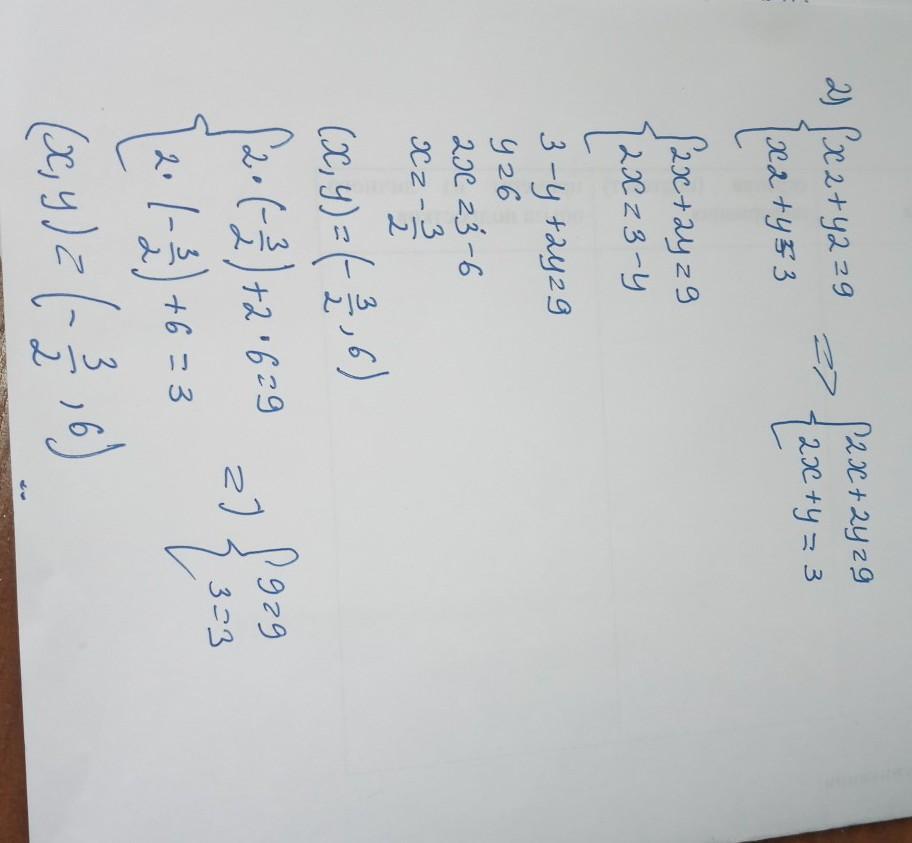 2) { x2+y2=9 => { 2x+2y=9
x2+y=3 2x+y=3
{ 2x+2y=9
2x=3-y
3-y+2y=9
y=6
2x=3-6
x=-3/2
(x,y)=(-3/2,6)
{ 2·(-3/2)+2·6=9 => { 9=9
2·(-3/2)+6=3 3=3
(x,y)=(-3/2,6)